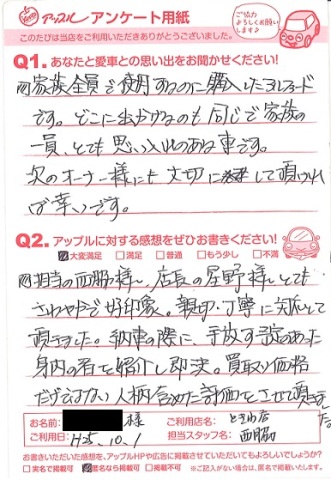 アップル アンケート用紙
ご協力
よろしくお願い
します♪
このたびは当店をご利用いただきありがとうございました。
Q1. あなたと愛車との思い出をお聞かせください!
家族全員で使用するのに購入した
です。どこに出かけるのも同じで家族の
一員、とても思い入れのある車です。
次のオーナー様にも大切にして頂ければ
幸いです。
Q2. アップルに対する感想をぜひお書きください!
大変満足 満足 普通 もう少し 不満
担当の西脇様、店長の星野様、とても
さわやかで好印象。親切・丁寧に対応して
頂きました。納車の際に、手放す予定のあった
身内の者を紹介し即決。買取り価格
だけではない人柄含めた評価をさせて頂きました。
お名前: 様 ご利用店名: ときわ店
ご利用日: H25.10.1 担当スタッフ名: 西脇
お書きいただいた感想を、アップルHPや広告に掲載させていただいてもよろしいでしょうか?
実名で掲載可 匿名なら掲載可 掲載不可 ※ご記入がない場合は、匿名で掲載いたします。